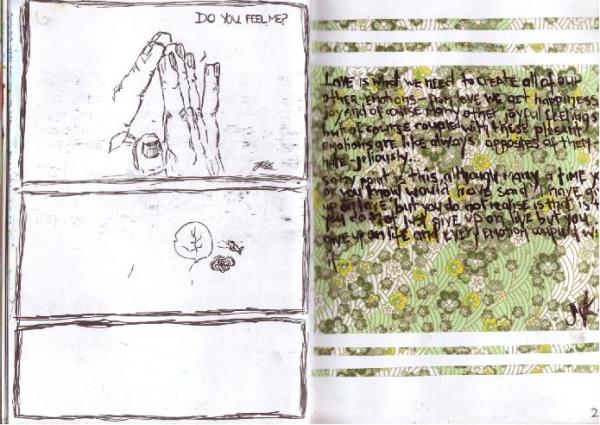 DO YOU FEEL ME?
LOVE IS what we need to CREATE all of our
other emotions - from love we get happiness
joy and of course many other joyful feelings
but of course coupled with these plesant
emotions are like always opposites of them
hate jeliousy.
sorry point is this although many a time
or you know would have said I have
up on love but you do not realise is that is
you do not just give up on love but you
give up on life and EVERY EMOTION coupled
JNK
2